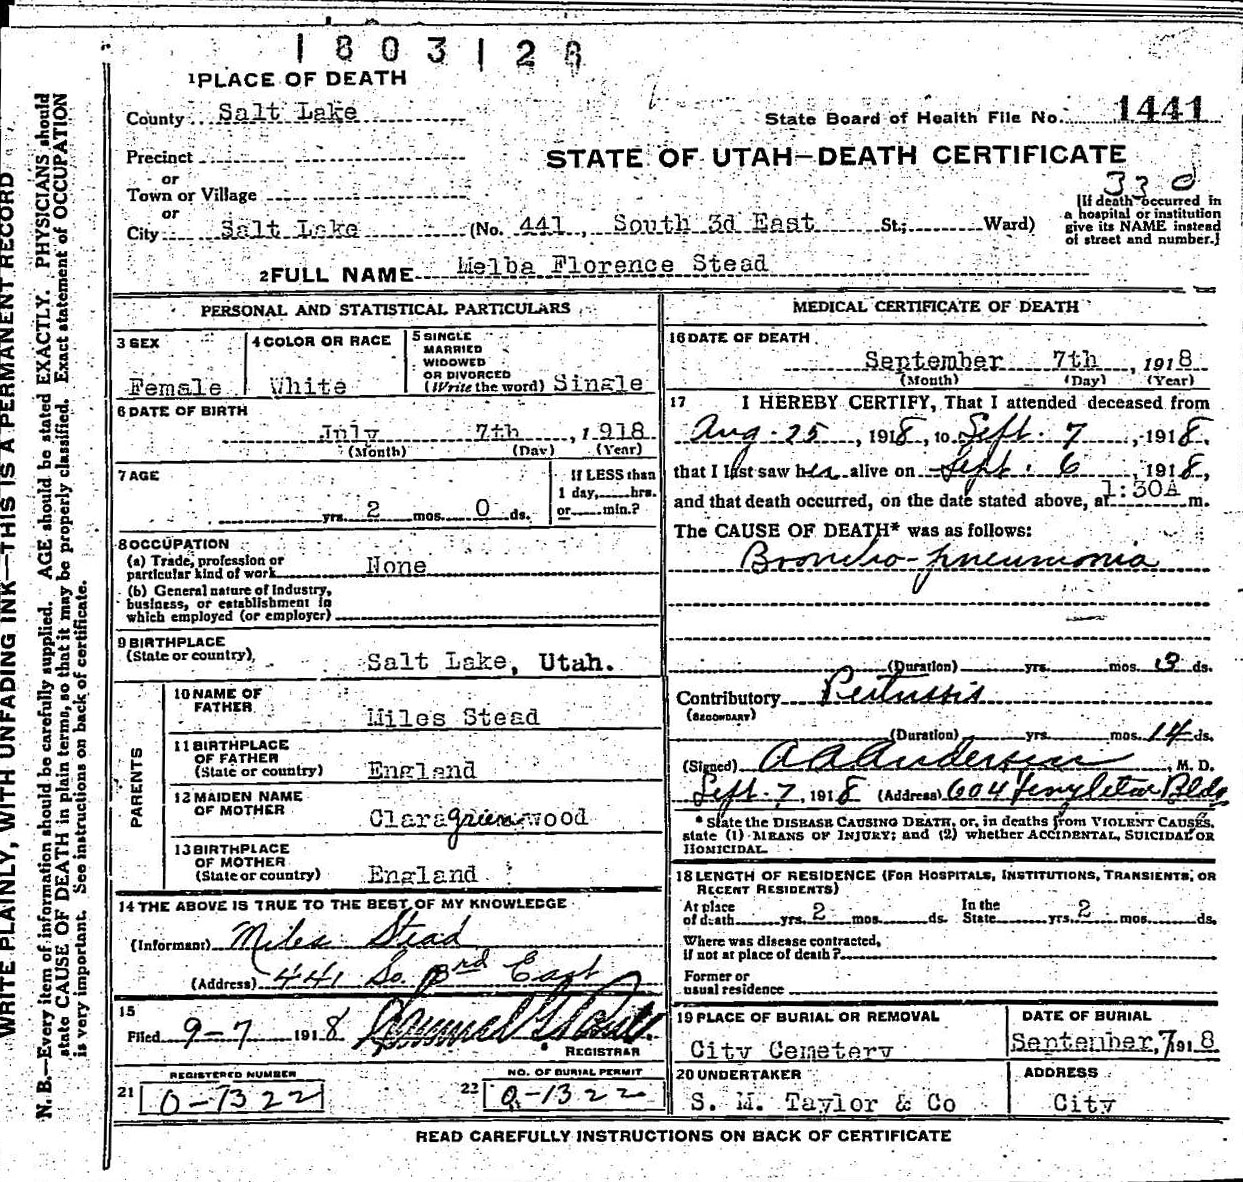 1803128
1 PLACE OF DEATH
County Salt Lake
State Board of Health File No. 1441
Precinct
STATE OF UTAH—DEATH CERTIFICATE
or
Town or Village
330
or
City Salt Lake (No. 441, South 3d East St.; Ward)
[If death occurred in
a hospital or institution
give its NAME instead
of street and number.]
2 FULL NAME Melba Florence Stead
PERSONAL AND STATISTICAL PARTICULARS
3 SEX
Female
4 COLOR OR RACE
White
5 SINGLE
MARRIED
WIDOWED
OR DIVORCED
(Write the word) Single
6 DATE OF BIRTH
July 7th, 1918
(Month) (Day) (Year)
7 AGE
yrs. 2 mos. 0 ds.
If LESS than
1 day, hrs.
or min.?
8 OCCUPATION
(a) Trade, profession or
particular kind of work None
(b) General nature of Industry,
business, or establishment in
which employed (or employer)
9 BIRTHPLACE
(State or country) Salt Lake, Utah.
PARENTS
10 NAME OF
FATHER Miles Stead
11 BIRTHPLACE
OF FATHER
(State or country) England
12 MAIDEN NAME
OF MOTHER Clara greenwood
13 BIRTHPLACE
OF MOTHER
(State or country) England
14 THE ABOVE IS TRUE TO THE BEST OF MY KNOWLEDGE
(Informant) Miles Stead
(Address) 441 So. 3rd East
15
Filed 9-7 1918
REGISTRAR
REGISTERED NUMBER
21 O-1322
NO. OF BURIAL PERMIT
22 O-1322
MEDICAL CERTIFICATE OF DEATH
16 DATE OF DEATH
September 7th, 1918
(Month) (Day) (Year)
17 I HEREBY CERTIFY, That I attended deceased from
Aug. 25, 1918, to Sept. 7, 1918,
that I last saw her alive on Sept. 6, 1918,
and that death occurred, on the date stated above, at 1:30A m.
The CAUSE OF DEATH* was as follows:
Broncho-pneumonia
(Duration) yrs. mos. 3 ds.
Contributory Pertussis
(SECONDARY)
(Duration) yrs. mos. 14 ds.
(Signed) A A Anderson, M. D.
Sept. 7, 1918 (Address) 604 Templeton Bldg
* State the DISEASE CAUSING DEATH, or, in deaths from VIOLENT CAUSES,
state (1) MEANS OF INJURY; and (2) whether ACCIDENTAL, SUICIDAL OR
HOMICIDAL.
18 LENGTH OF RESIDENCE (FOR HOSPITALS, INSTITUTIONS, TRANSIENTS, OR
RECENT RESIDENTS)
At place
of death yrs. 2 mos. ds.
In the
State yrs. 2 mos. ds.
Where was disease contracted,
if not at place of death?
Former or
usual residence
19 PLACE OF BURIAL OR REMOVAL
City Cemetery
DATE OF BURIAL
September, 7 1918
20 UNDERTAKER
S. M. Taylor & Co
ADDRESS
City
READ CAREFULLY INSTRUCTIONS ON BACK OF CERTIFICATE
WRITE PLAINLY, WITH UNFADING INK—THIS IS A PERMANENT RECORD
N. B.—Every item of information should be carefully supplied. AGE should be stated EXACTLY. PHYSICIANS should
state CAUSE OF DEATH in plain terms, so that it may be properly classified. Exact statement of OCCUPATION
is very important. See instructions on back of certificate.